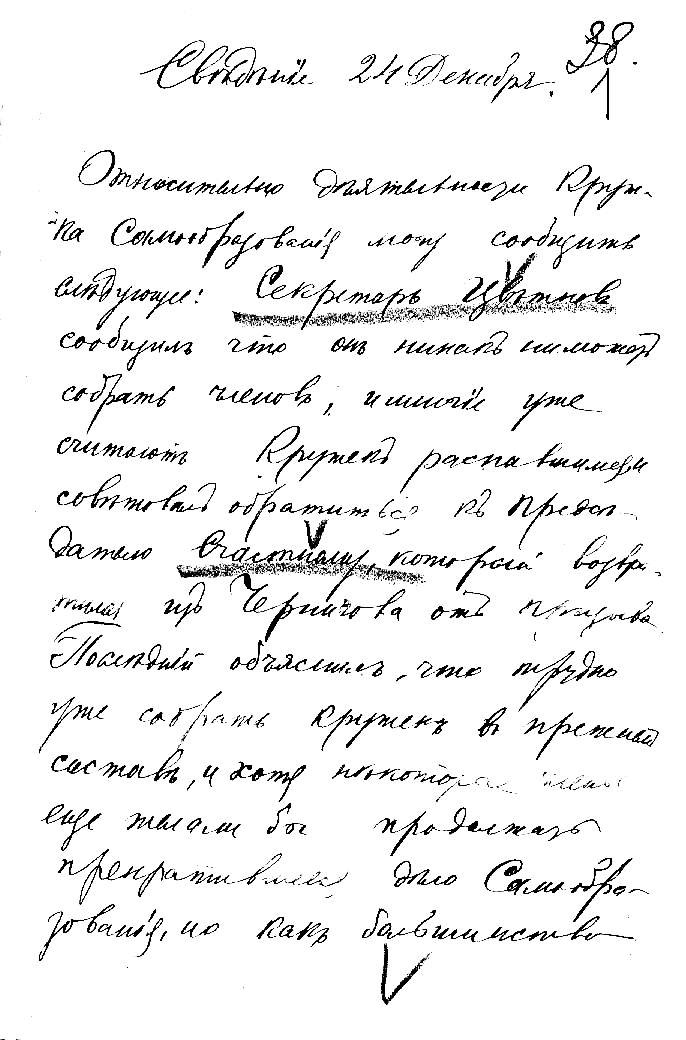 38.
Свѣдѣніе 24 Декабря.
Относительно дѣятельности Круж-
ка Самообразованія могу сообщить
слѣдующее: Секретарь Цвѣтковъ
сообщилъ что онъ никакъ неможетъ
собрать членовъ, и многіе уже
считаютъ Кружекъ распавшимся
совѣтовалъ обратиться къ предсѣ-
дателю Счастному, который возвра-
тился изъ Чернигова отъ призыва
Послѣдній объяснилъ, что трудно
уже собрать кружекъ въ прежнемъ
составѣ, и хотя нѣкоторые члены
еще желали бы продолжать
прекратившееся дѣло Самообра-
зованія, но какъ большинство